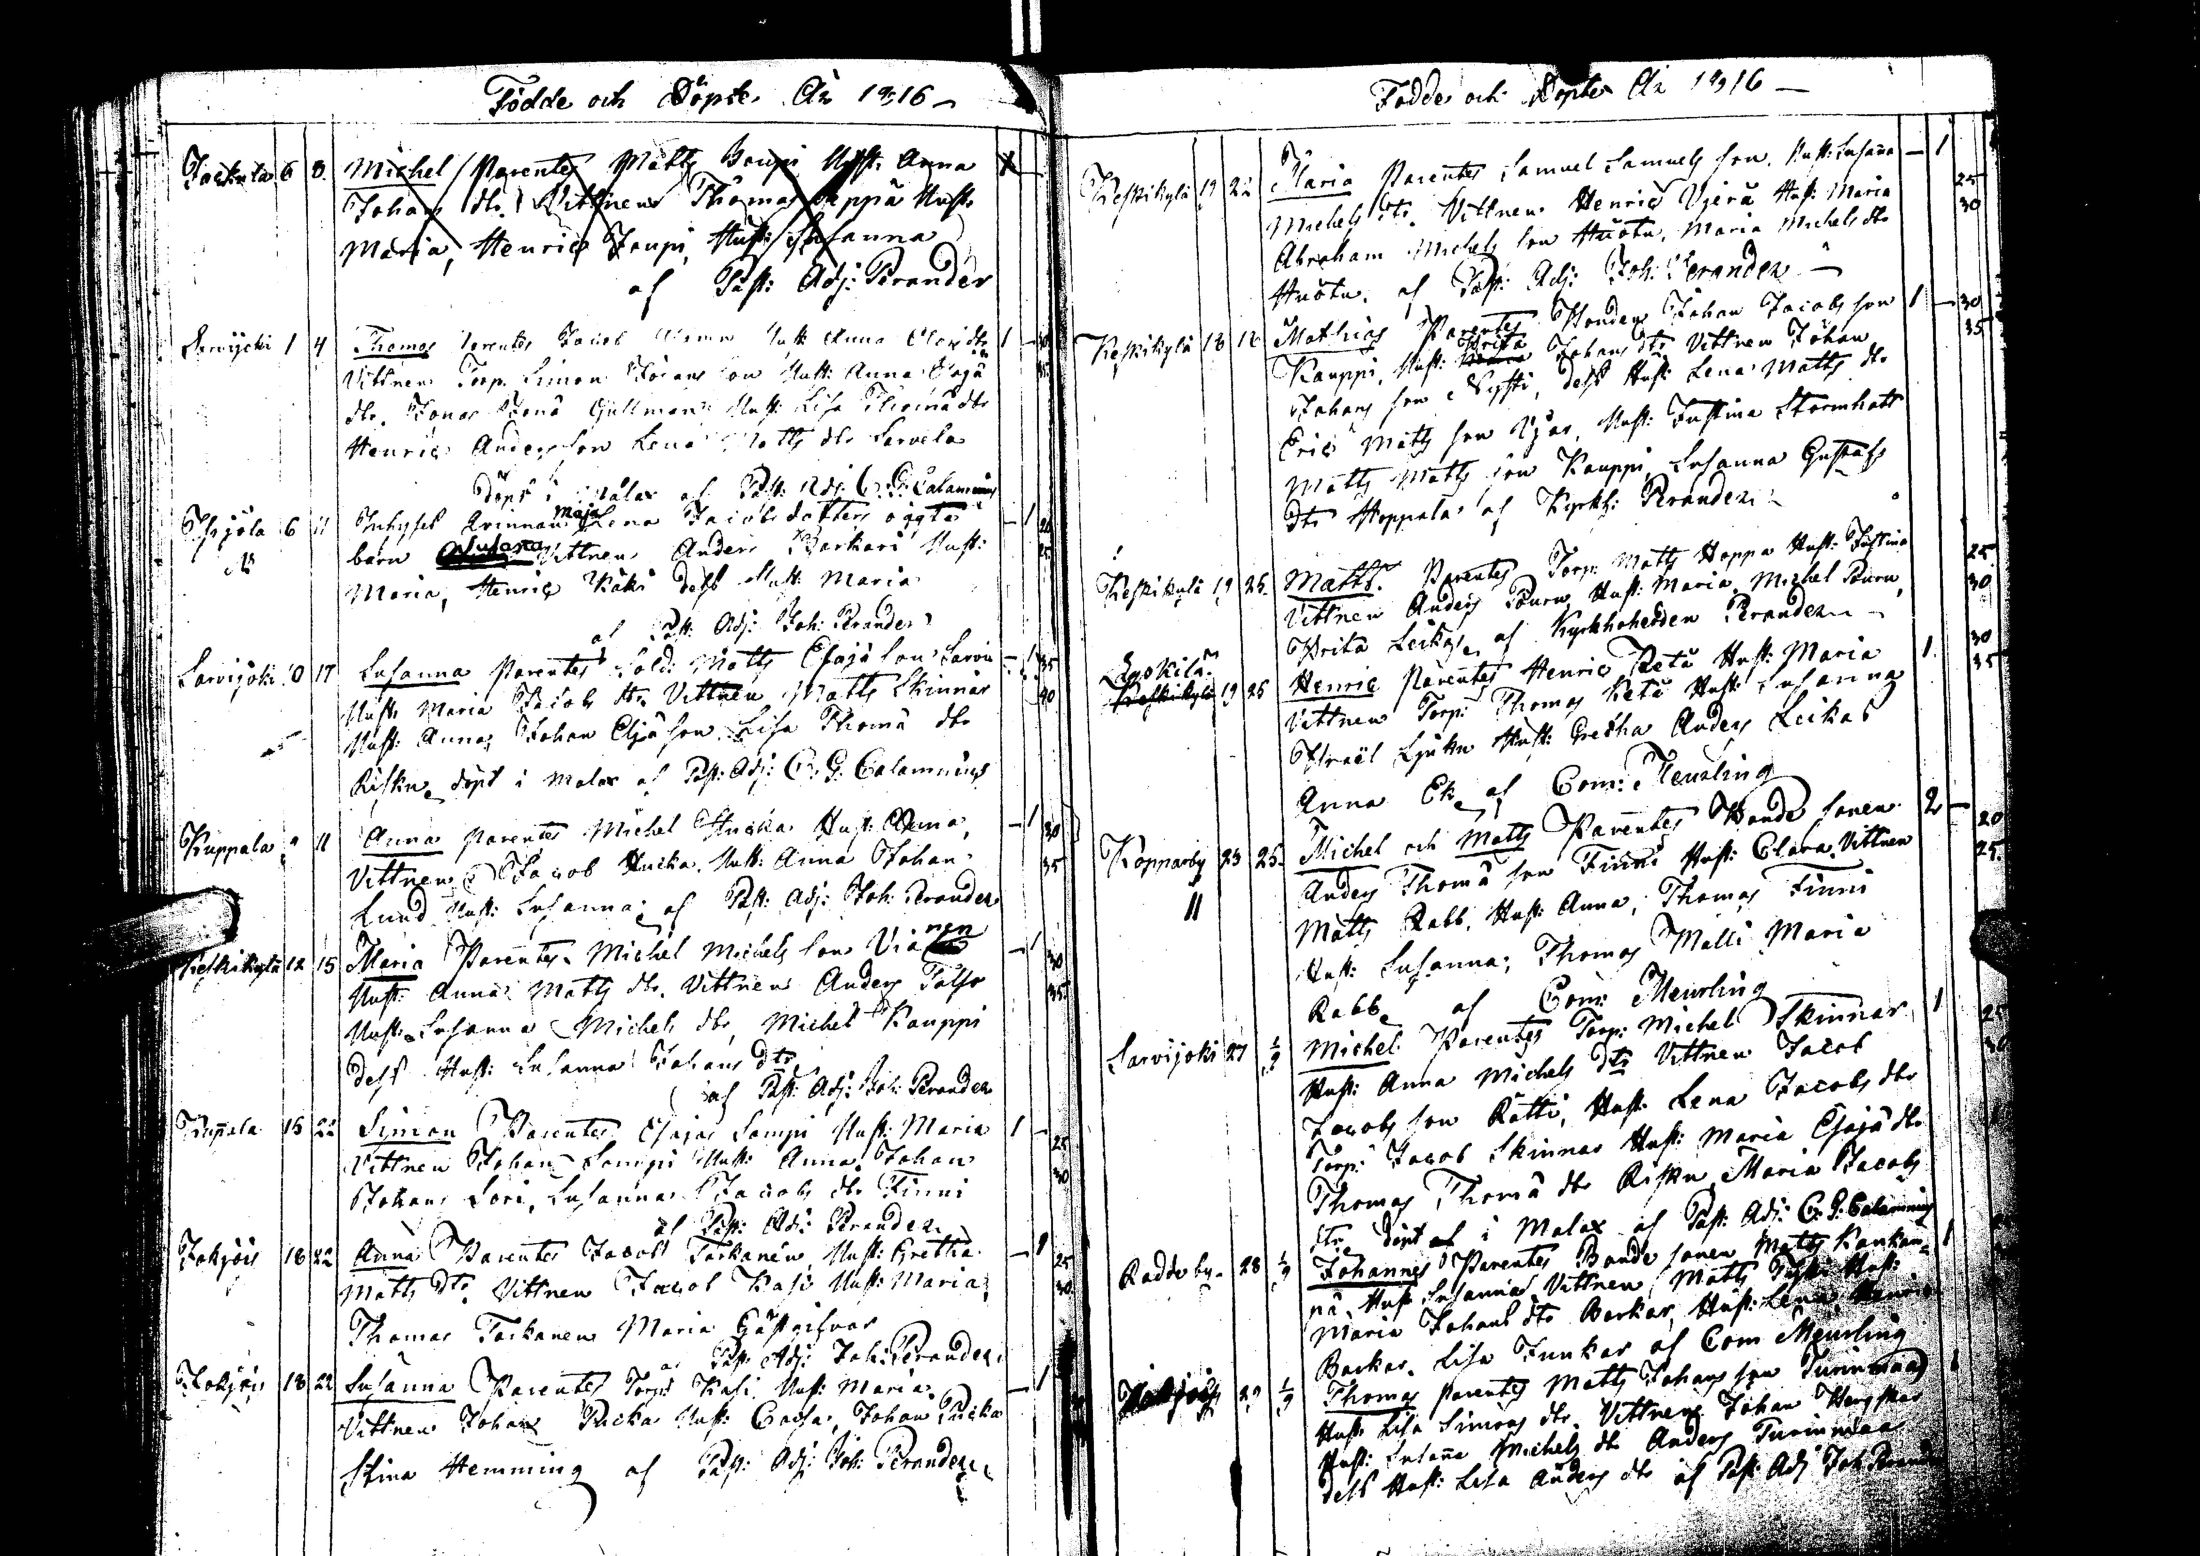 Födde och Döpte År 1816
Jockula 6 8. Michel / Parentes Matts Joupi Hust: Anna
Johans dtr. Vittnen Thomas Seppä Hustr
Maria, Henric Joupi, Hust: Susanna
af Past: Adj: Perander
1 4 Thomas Parentes Jacob Hust: Anna dtr 1
Vittnen Torp. Simon Johans son Hust: Anna Esajä
dtr. Jonas Gullman Hust: Lisa Thomä dtr
Henric Anders son Lena Matts dtr Sarvela
döpt i Malax af Past: Adj: C: G: Calamnius
6 11 Inhyses Qvinnan Maja Lena Jacobs dotters oägta 1 20
barn Susana Vittnen Anders Barkari Hust: 25
Maria, Henric Käki dess Hust: Maria
af Past: Adj: Joh: Perander
Sarvijoki 10 17 Susanna Parentes Sold: Matts Esajä son Sarvi 1 35
Hust: Maria Jacobs dtr Vittnen Matts Skinnar 40
Hust: Anna, Johan Eljä son Lisa Thomä dtr
Risku, döpt i Malax af Past: Adj: C: G: Calamnius
Kuppala 9 11 Anna Parentes Michel Hucka Hust: Anna, 1 30
Vittnen Jacob Hucka. Hust: Anna Johan 35
Lund Hust: Susanna; af Past: Adj: Joh: Perander
Keskikylä 12 15 Maria Parentes Michel Michels son Via nen 1 30
Hust: Anna Matts dtr. Vittnen Anders 35
Hust: Susanna Michels dtr, Michel Kauppi
dess Hust: Susanna Johans dtr
af Past: Adj: Joh: Perander
Kuppala 15 22 Simon Parentes Esajas Sampi Hust: Maria 1 25
Vittnen Johan Sampi Hust: Anna Johan 30
Johans Lori, Susanna Jacobs dtr Finni
af Past: Adj: Perander
18 22 Anna Parentes Jacob Tarkanen Hust: Gretha 1 25
Matts dtr. Vittnen Jacob Kasi Hust: Maria; 30
Thomas Tarkanen Maria
af Past: Adj: Joh: Perander
18 22 Susanna Parentes Torp: Kasi Hust: Maria. 1
Vittnen Johan Pucka Hust: Caisa, Johan Pucka
Stina Hemming af Past: Adj: Joh: Perander
Födde och Döpte År 1816
Keskikylä 19 22 Maria Parentes Samuel Samuels son. Hust: Susana 1 25
Michels dtr. Vittnen Henric Hust: Maria 30
Abraham Michels son Maria Michels dtr
af Past: Adj: Joh: Perander
Keskikylä 18 Mathias Parentes Bonden Johan Jacobs son 1 30
Kauppi, Hust: Brita Johans dtr Vittnen Johan 35
Johans son dess Hust: Lena Matts dtr
Eric Matts son Hust: Justina Stormhatt
Matts Matts son Kauppi Susanna Gustafs
dtr Hoppala af Kyrkh: Perander
Keskikylä 19 25. Matts. Parentes Torp: Matts Hoppa Hust: Justina 25
Vittnen Anders Hust: Maria, Michel 30
Brita Leikas, af Kyrkhoherden Perander
Luokila Keskikylä 19 25 Henric Parentes Henric Ketu Hust: Maria 1. 30
Vittnen Torp: Thomas Ketu Hust: Susanna 35
Israël Hust: Gretha Anders Leikas
Anna Ek, af Com: Meurling
Kopparby 23 25. Michel och Matts Parentes Bonde sonen 2 20
Anders Thomä son Finni Hust: Clara. Vittnen 25
Matts Rabb, Hust: Anna, Thomas Finni
Hust: Susanna; Thomas Malli Maria
Rabb, af Com: Meurling
Sarvijoki 27 1/9 Michel Parentes Torp: Michel Skinnar, 1 25
Hust: Anna Michels dtr Vittnen Jacob 30
Jacobs son Rätti, Hust: Lena Jacobs dtr
Torp: Jacob Skinnar Hust: Maria Esajä dtr
Thomas Thomä dtr Risku, Maria Jacobs
dtr, döpt i Malax af Past: Adj: C: G: Calamnius
28 1/9 Johannes Parentes Bonde sonen Matts Kankan- 1
pä, Hust: Susanna. Vittnen Matts Hust:
Maria Johans dtr Barkar, Hust: Lena, Henric
Barkar. Lisa Funkar af Com Meurling
1/9 Thomas Parentes Matts Johans son Turinmaa 1
Hust: Lisa Simons dtr. Vittnen Johan
Hust: Susana Michels dtr Anders Turinmaa
dess Hust: Lisa Anders dtr af Past: Adj Joh: Perander